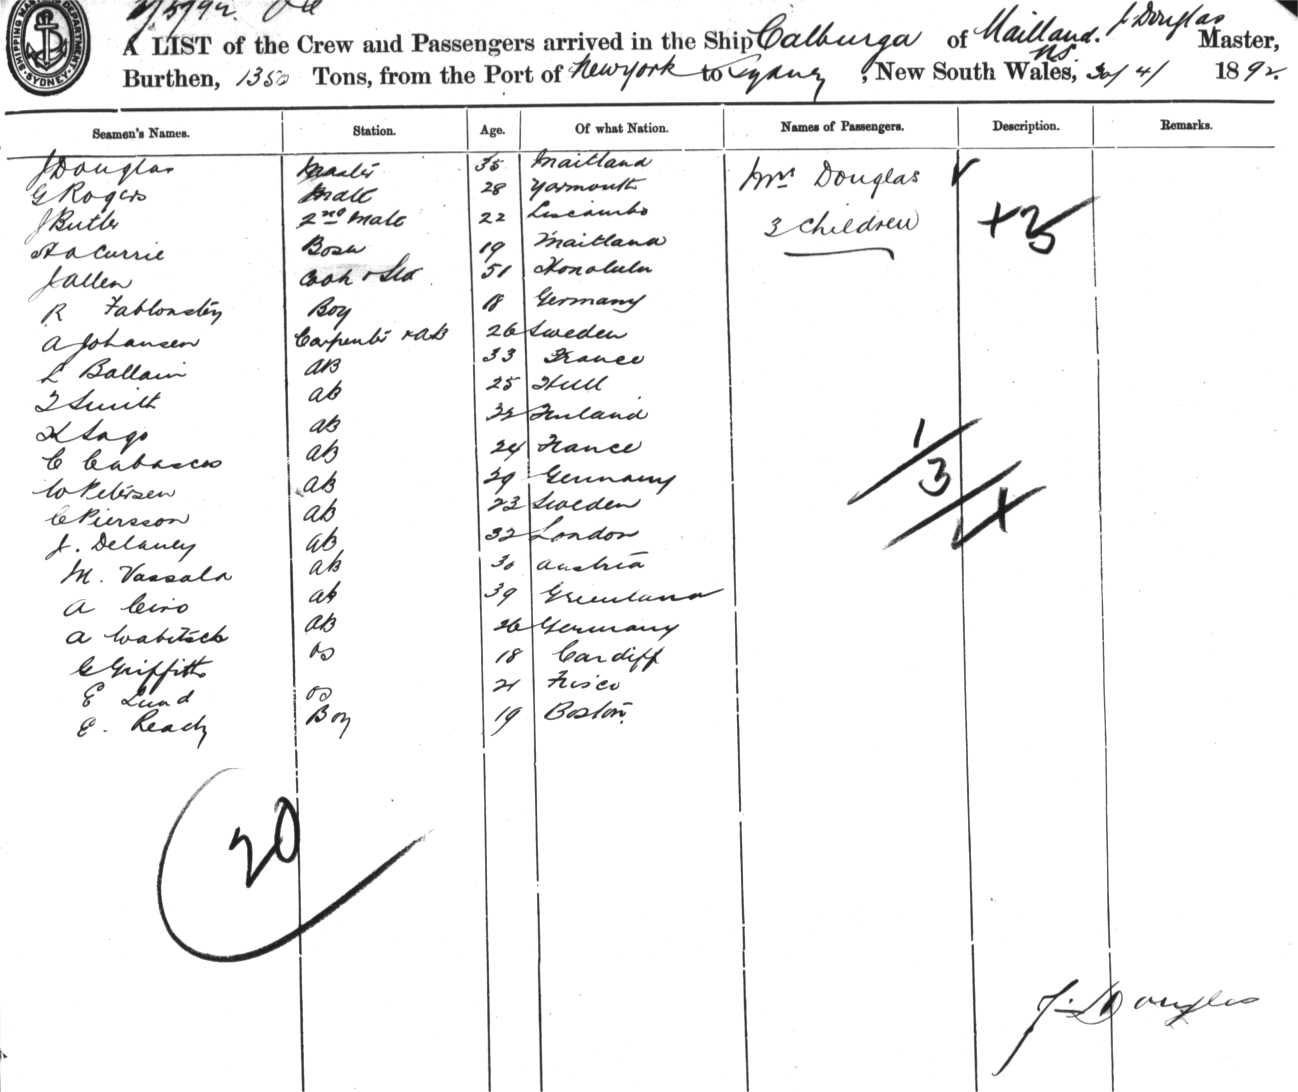 SHIPPING MASTER'S DEPARTMENT SYDNEY
A LIST of the Crew and Passengers arrived in the Ship Calburga of Maitland. NS. J. Douglas Master,
Burthen, 1350 Tons, from the Port of New york to Sydney, New South Wales, 30/4/ 1892.
Seamen's Names. Station. Age. Of what Nation. Names of Passengers. Description. Remarks.
J Douglas Master 35 Maitland Mrs Douglas
G Rogers Mate 28 Yarmouth
J Butler 2nd Mate 22 3 children +3
H A Currie Bosn 19 Maitland
J Allen Cook & Std 51 Honolulu
R Boy 18 Germany
A Johansen Carpenter & AB 26 Sweden
L Ballain AB 33 France
T Smith AB 25 Hull
K Sago AB 32 Finland
C AB 24 France
W Petersen AB 29 Germany
C Piersson AB 23 Sweden
J. Delaney AB 32 London
M. Vassala AB 30 Austria
A Ciro AB 39
A Wabitsch AB 26 Germany
G Griffiths OS 18 Cardiff
E Lund OS 21 Frisco
E. Ready Boy 19 Boston
1/3/
20
J. Douglas